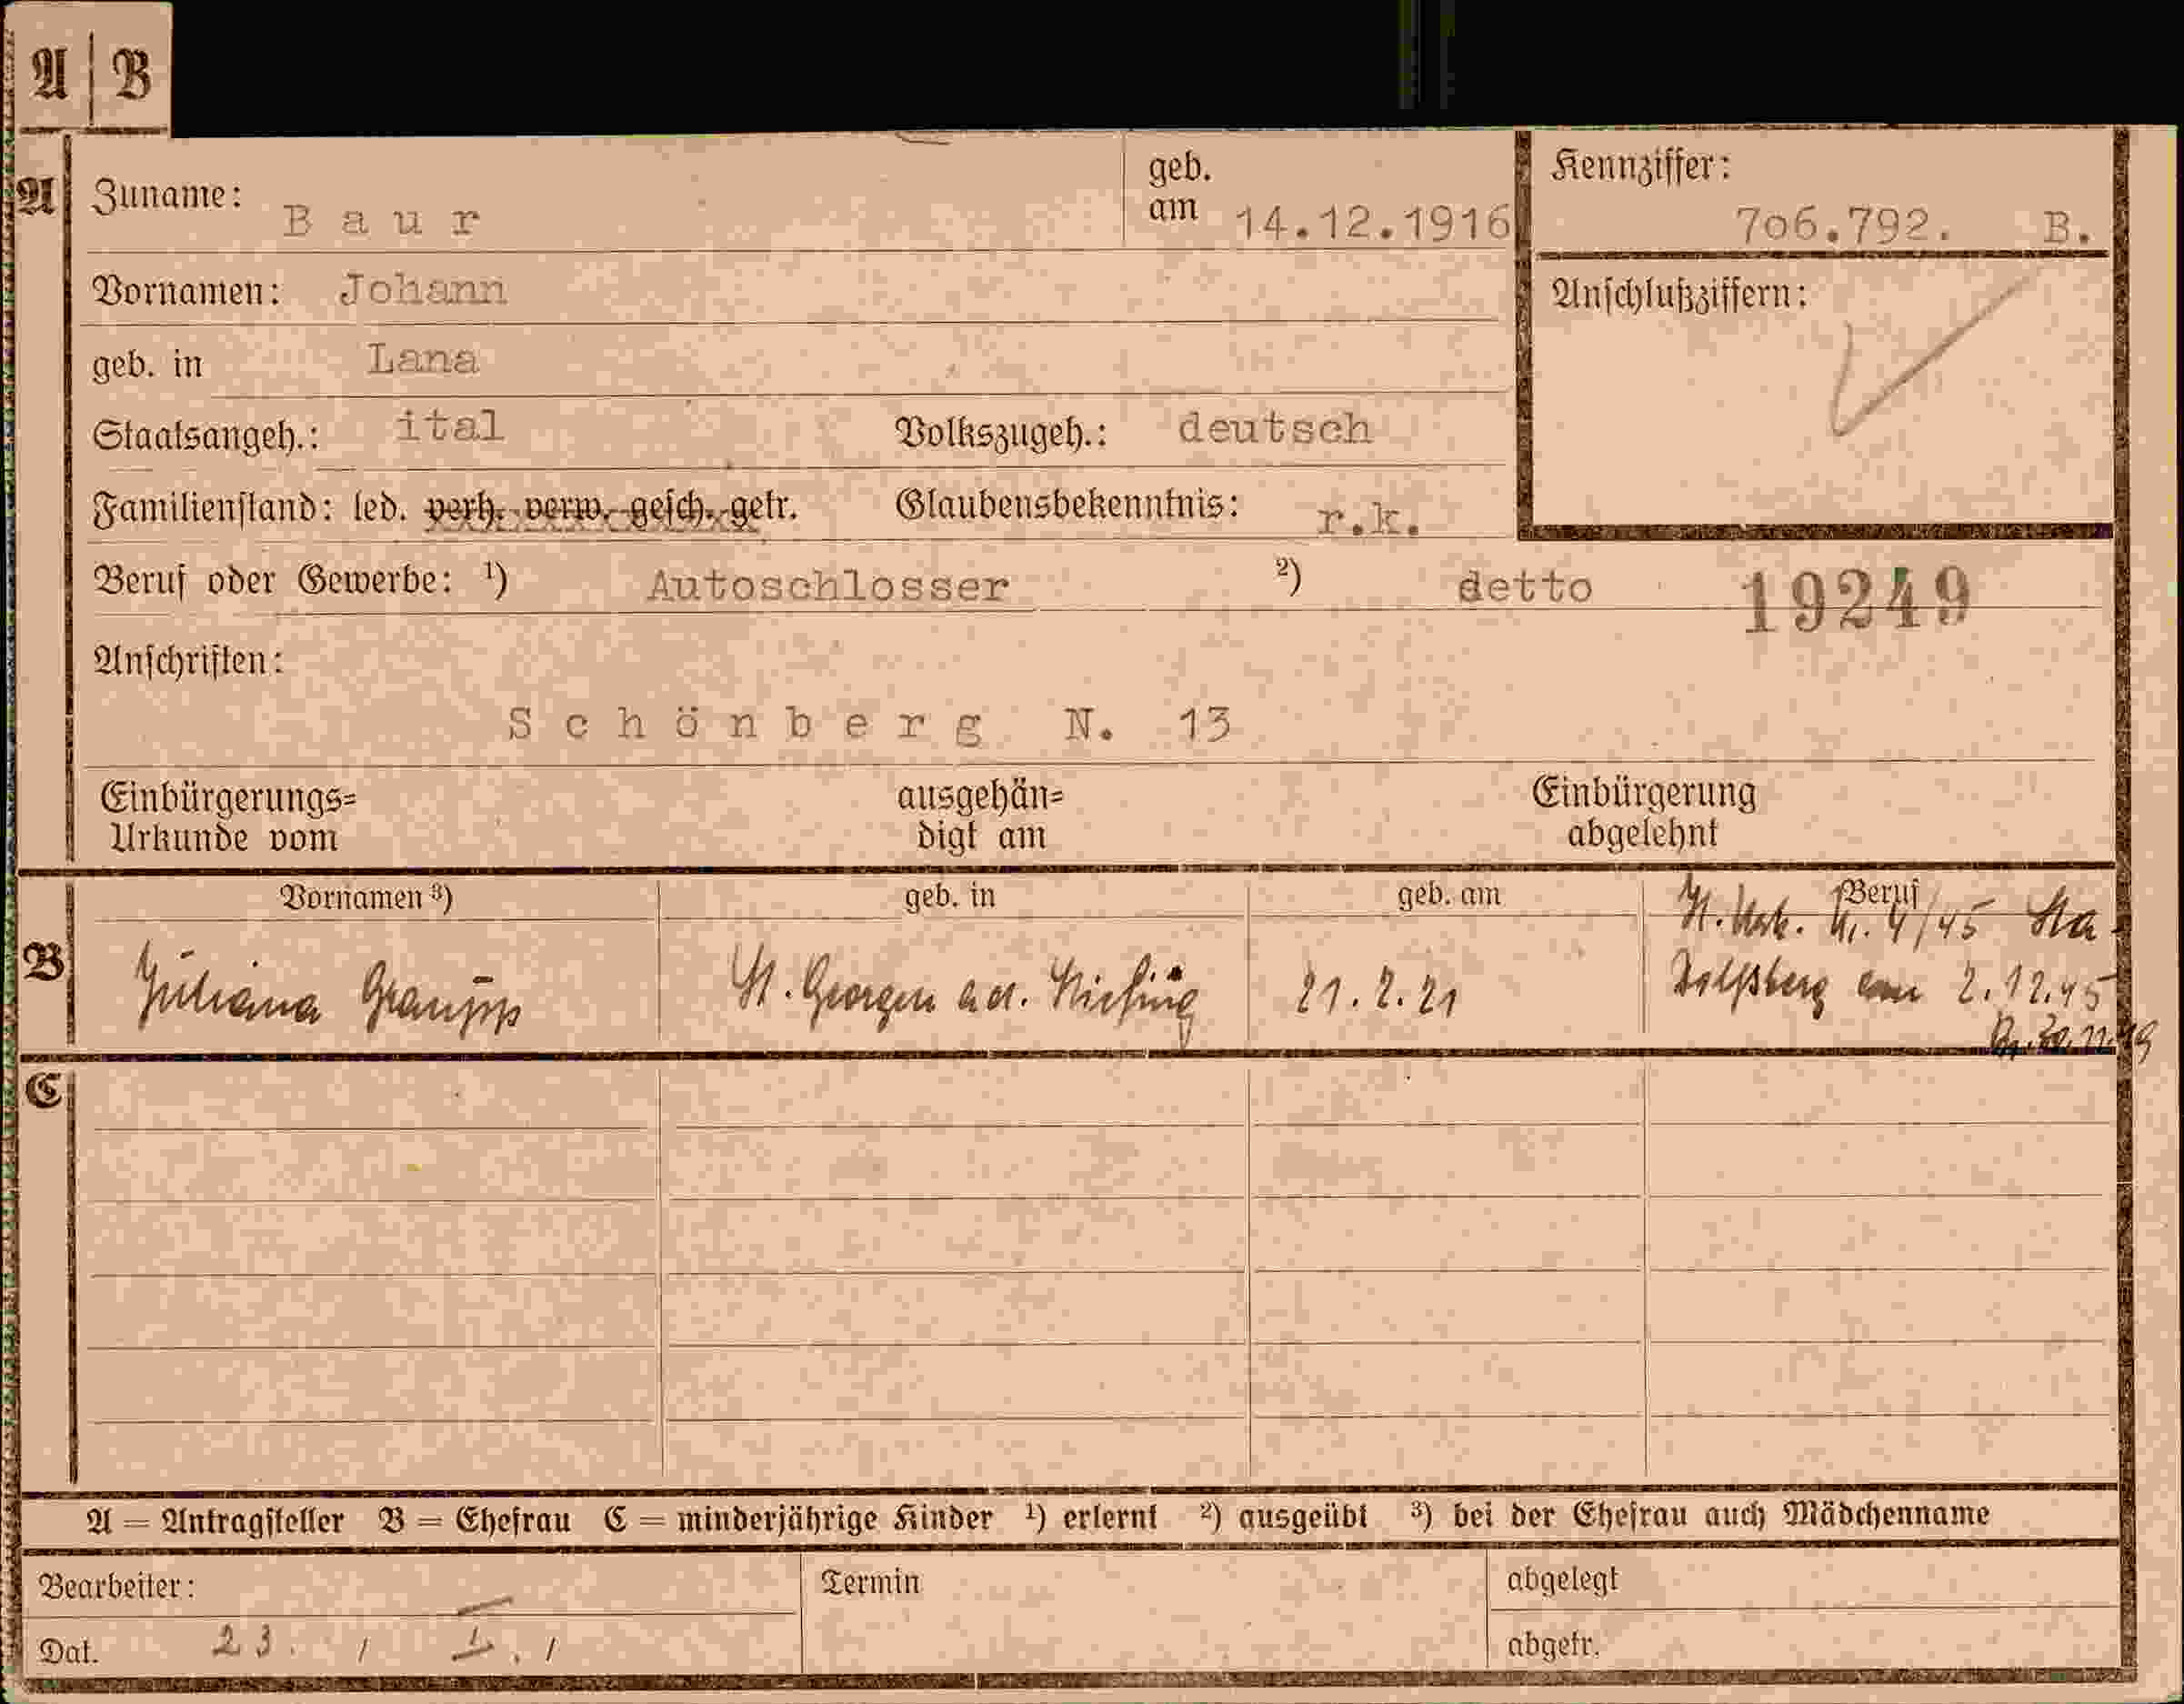 A | B
A
Zuname: Baur geb. am 14.12.1916 Kennziffer: 706.792. B.
Vornamen: Johann Anschlußziffern:
geb. in Lana
Staatsangeh.: ital Volkszugeh.: deutsch
Familienstand: led. verh. verw. gesch. getr. Glaubensbekenntnis: r.k.
Beruf oder Gewerbe: ¹) Autoschlosser ²) detto 19249
Anschriften:
Schönberg N. 13
Einbürgerungs= ausgehän= Einbürgerung
Urkunde vom digt am abgelehnt
B
Vornamen ³) geb. in geb. am Beruf
Nr. 4/45 Sta
Juliana St. Georgen 21.2.21 am 2.12.45
C
A = Antragsteller B = Ehefrau C = minderjährige Kinder ¹) erlernt ²) ausgeübt ³) bei der Ehefrau auch Mädchenname
Bearbeiter: Termin abgelegt
Dat. 23. / I. / abgetr.